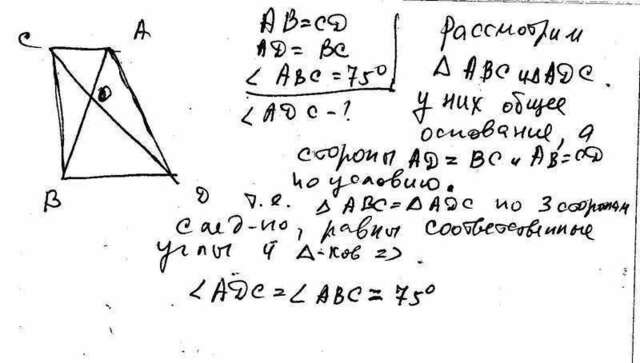 C A
O
B D
AB=CD
AD= BC
∠ ABC=75°
∠ADC-?
Рассмотрим
△ ABC и △ ADC.
У них общее
основание, а
стороны AD=BC и AB=CD
по условию.
т.е. △ABC=△ADC по 3 сторонам
след-но, равны соответственные
углы △-ков =>
∠ADC=∠ABC=75°